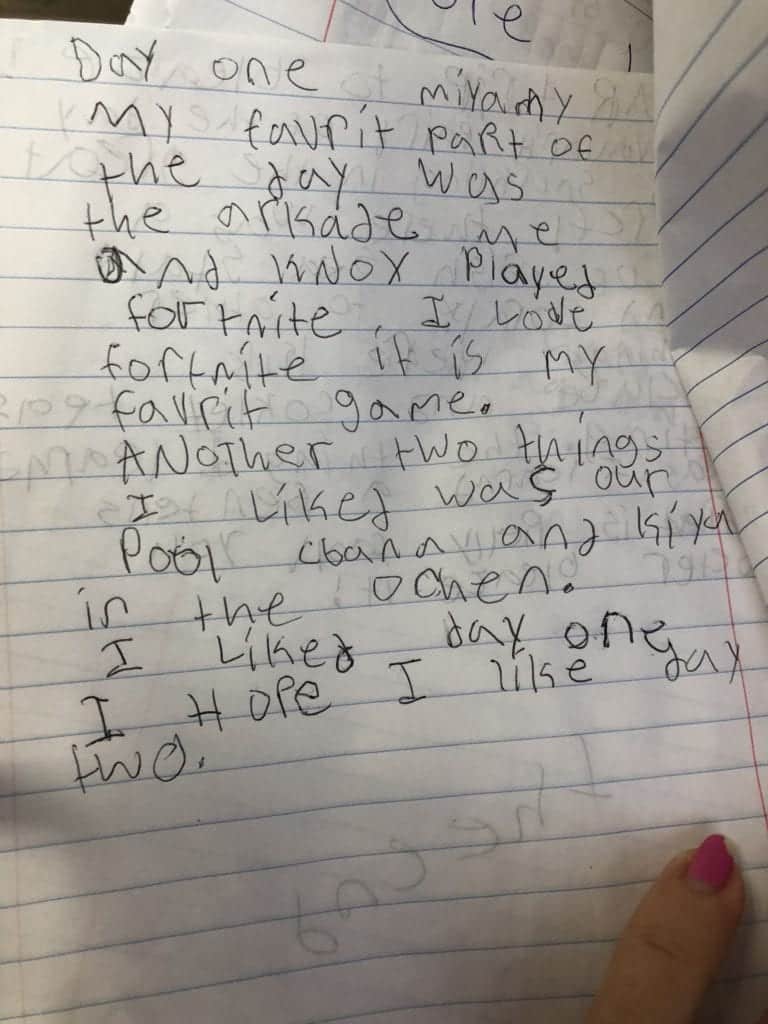 Day one miyamy
My favrit part of
the day was
the arkade me
and Knox Played
fortnite, I Love
fortnite it is my
favrit game.
ANoTher two things
I Liked was our
Pool cbana and kiya
in the ochen.
I Liked day one
I Hope I like day
two.